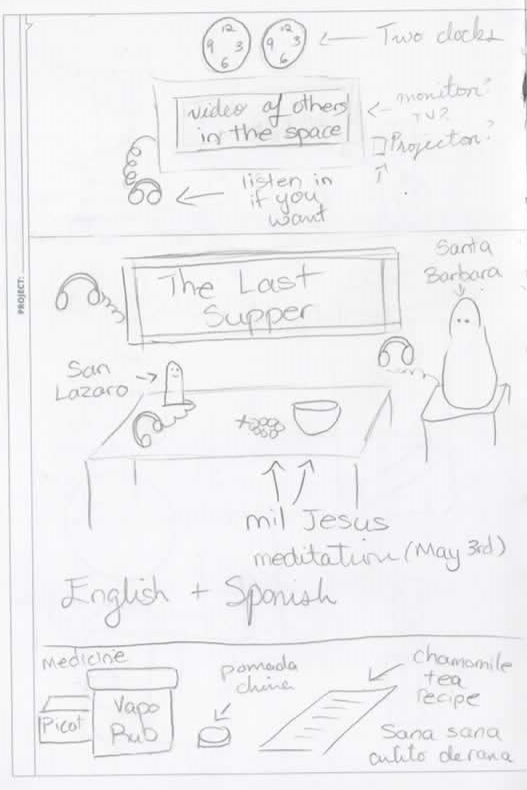 PROJECT:
12
9 3
6
12
9 3
6
Two clocks
video of others
in the space
monitor?
TV?
Projector?
listen in
if you
want
The Last
Supper
Santa
Barbara
San
Lazaro
mil Jesus
meditation (May 3rd)
English + Spanish
Medicine
Picot
Vapo
Rub
pomada
china
chamomile
tea
recipe
Sana sana
culito de rana